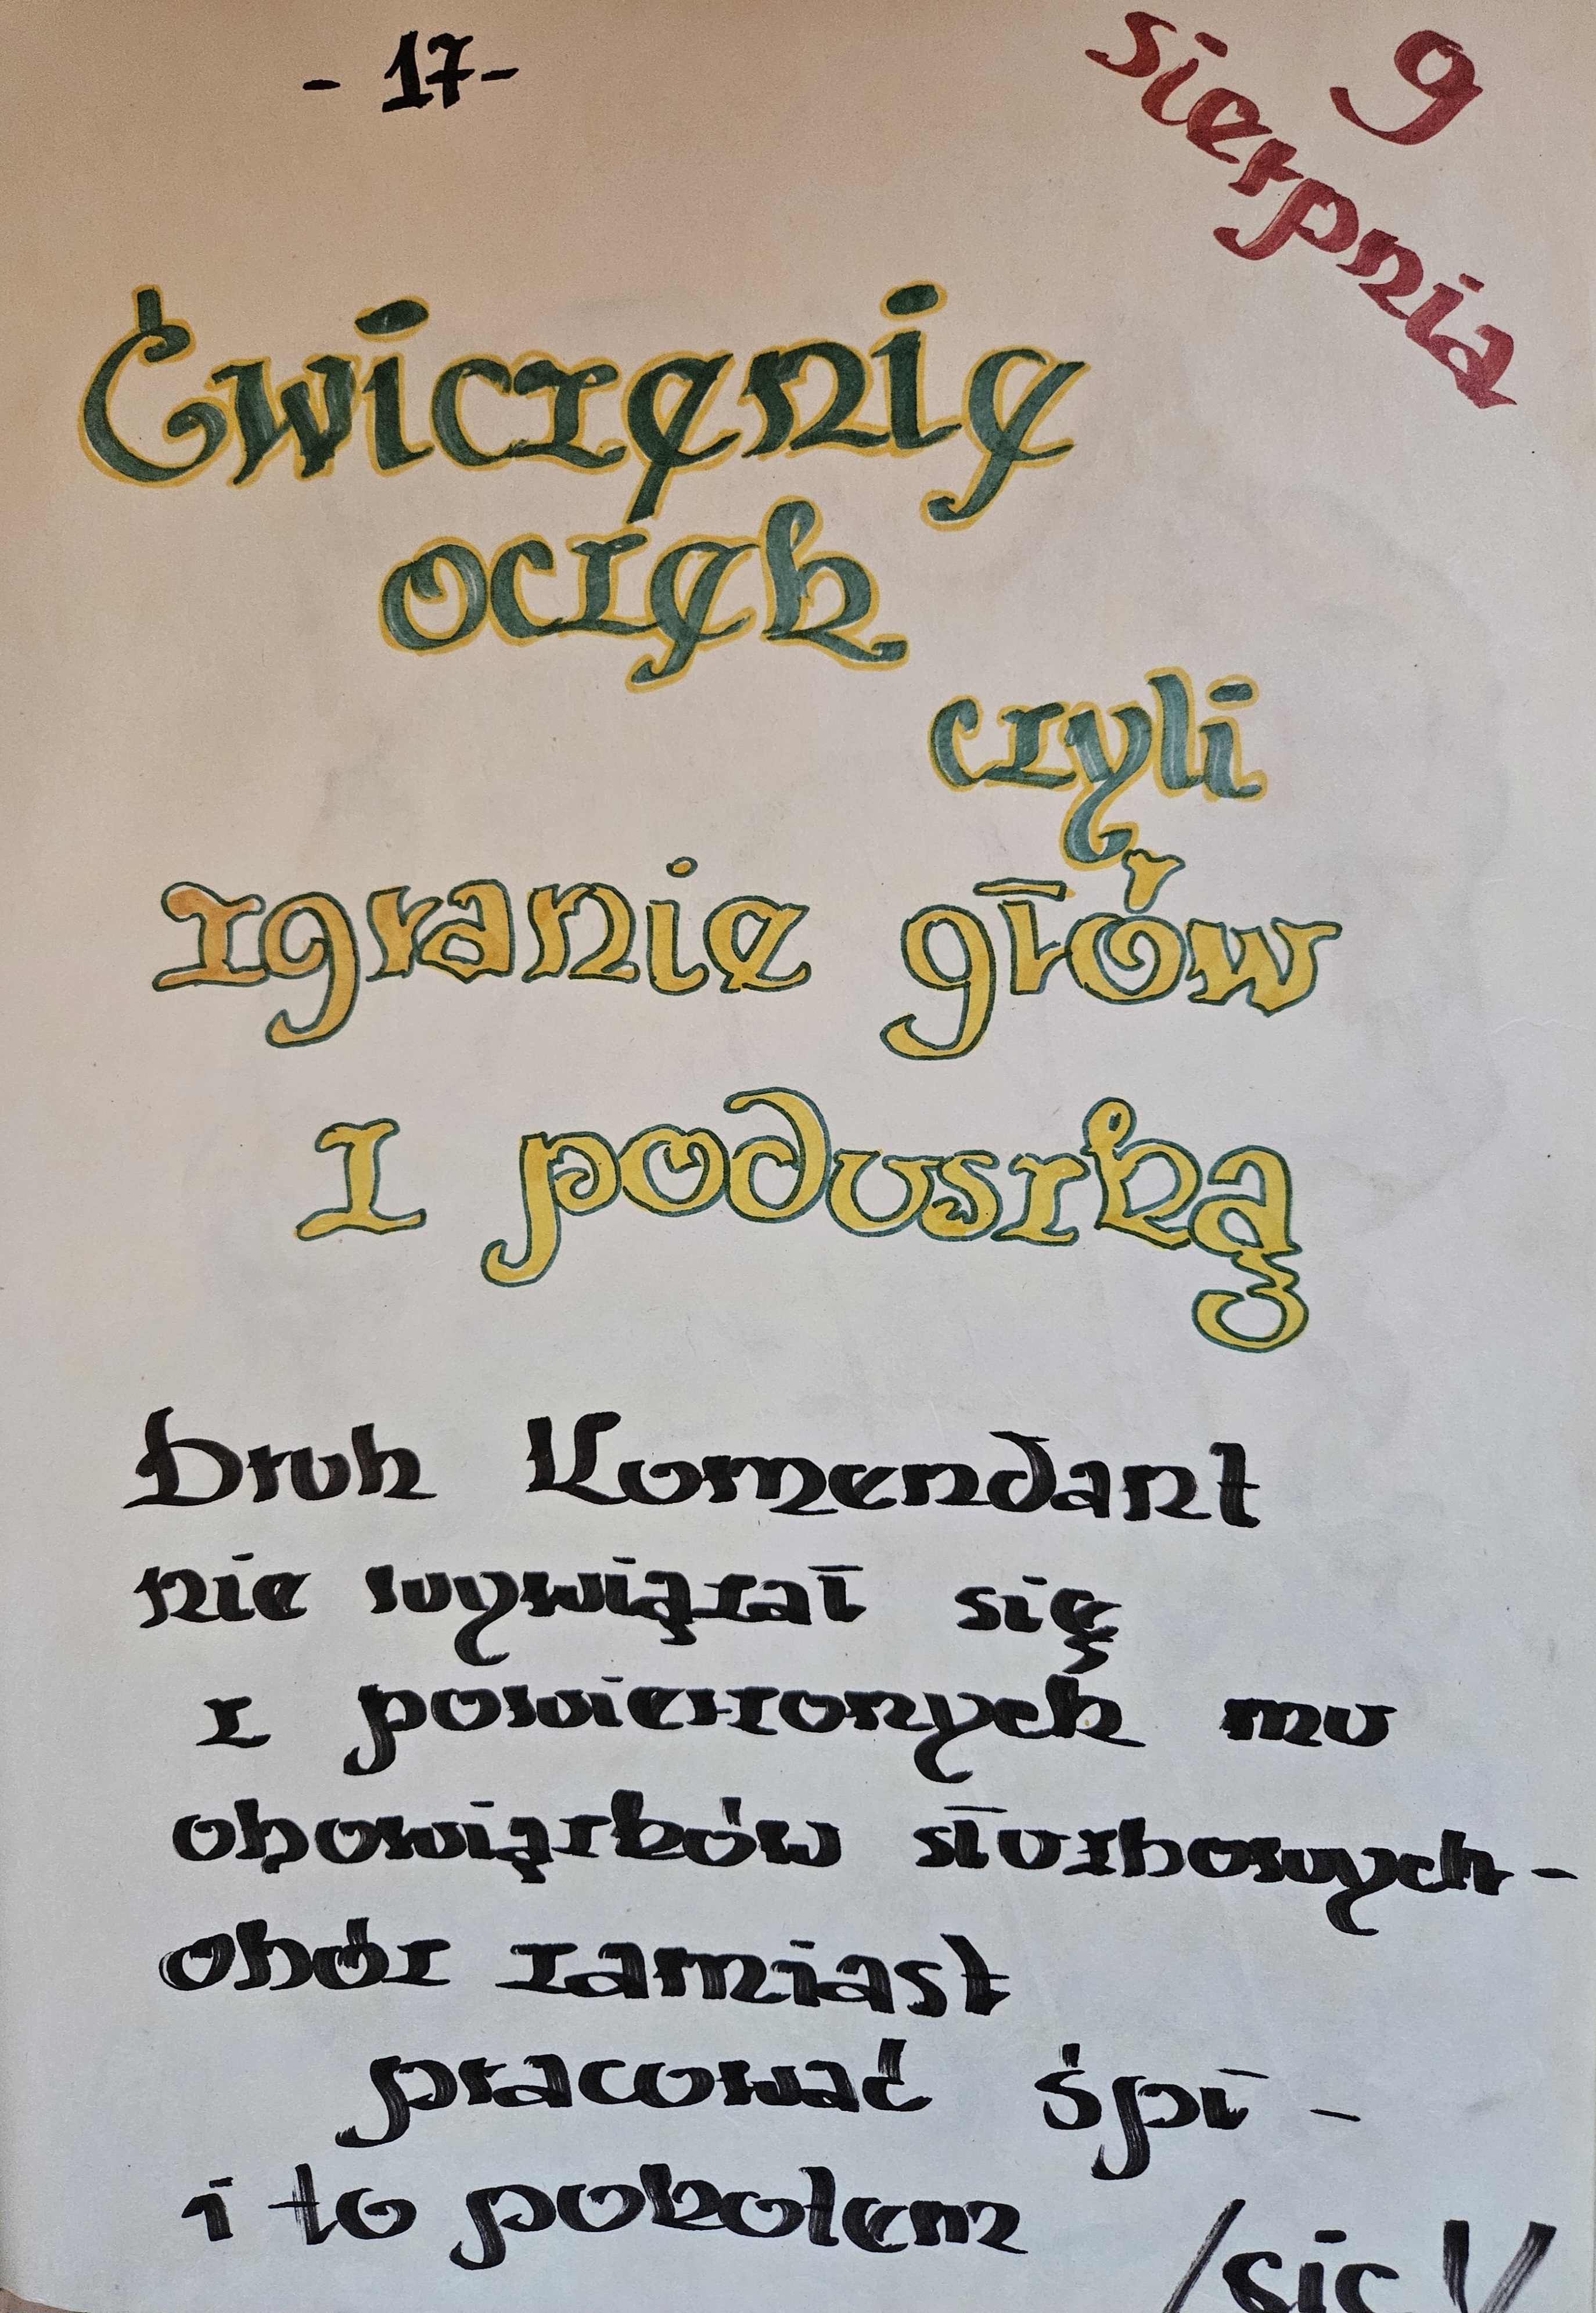 - 17 -
9
sierpnia
Ćwiczenie
oczek
czyli
zgranie głów
z poduszką
Druh Komendant
nie wywiązał się
z powierzonych mu
obowiązków służbowych -
obóz zamiast
pracować śpi -
i to pokotem
/sic!/